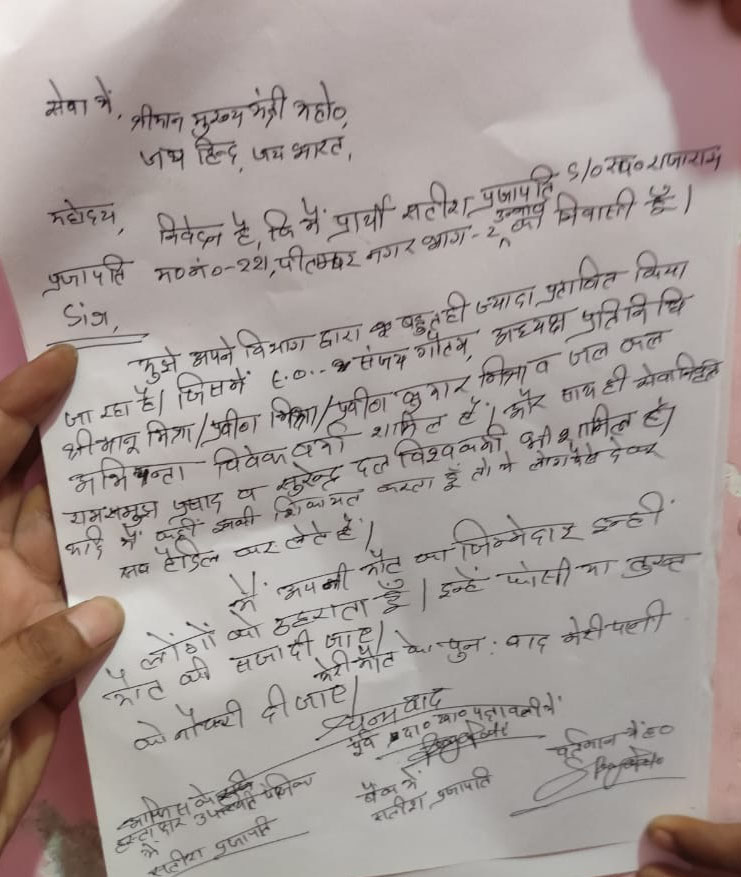 सेवा में, श्रीमान मुख्य मंत्री महो०,
जय हिन्द, जय भारत,
महोदय,
निवेदन है, कि मैं प्रार्थी सतीश प्रजापति S/O स्व० राजाराम
प्रजापति म०नं०-221, पीताम्बर नगर भाग-2, उन्नाव का निवासी हूँ।
मुझे अपने विभाग द्वारा बहुत ही ज्यादा प्रताड़ित किया
जा रहा है। जिसमें E.O. संजय गौतम, अध्यक्ष प्रतिनिधि
श्री भानू मिश्रा/प्रवीण मिश्रा/प्रवीण कुमार मिश्रा व जल कल
अभियन्ता विवेक वर्मा शामिल हैं। और साथ ही सेवानिवृत्ति
रामसमुझ प्रसाद व सुरेन्द्र दत्त विश्वकर्मा भी शामिल हैं।
यदि मैं कहीं इनकी शिकायत करता हूँ तो ये लोग पैसे देकर
सब हैंडिल कर लेते हैं।
मैं अपनी मौत का जिम्मेदार इन्हीं
लोगों को ठहराता हूँ। इन्हें फांसी या तुरन्त
मौत की सजा दी जाए।
मेरी मौत के पुन: बाद मेरी पत्नी
को नौकरी दी जाए।
धन्यवाद
पूर्व पत्रावली में
वर्तमान में ह०
आफिस के
हस्ताक्षर उपस्थिति पंजिका
में
सतीश प्रजापति
बैंक में
सतीश प्रजापति